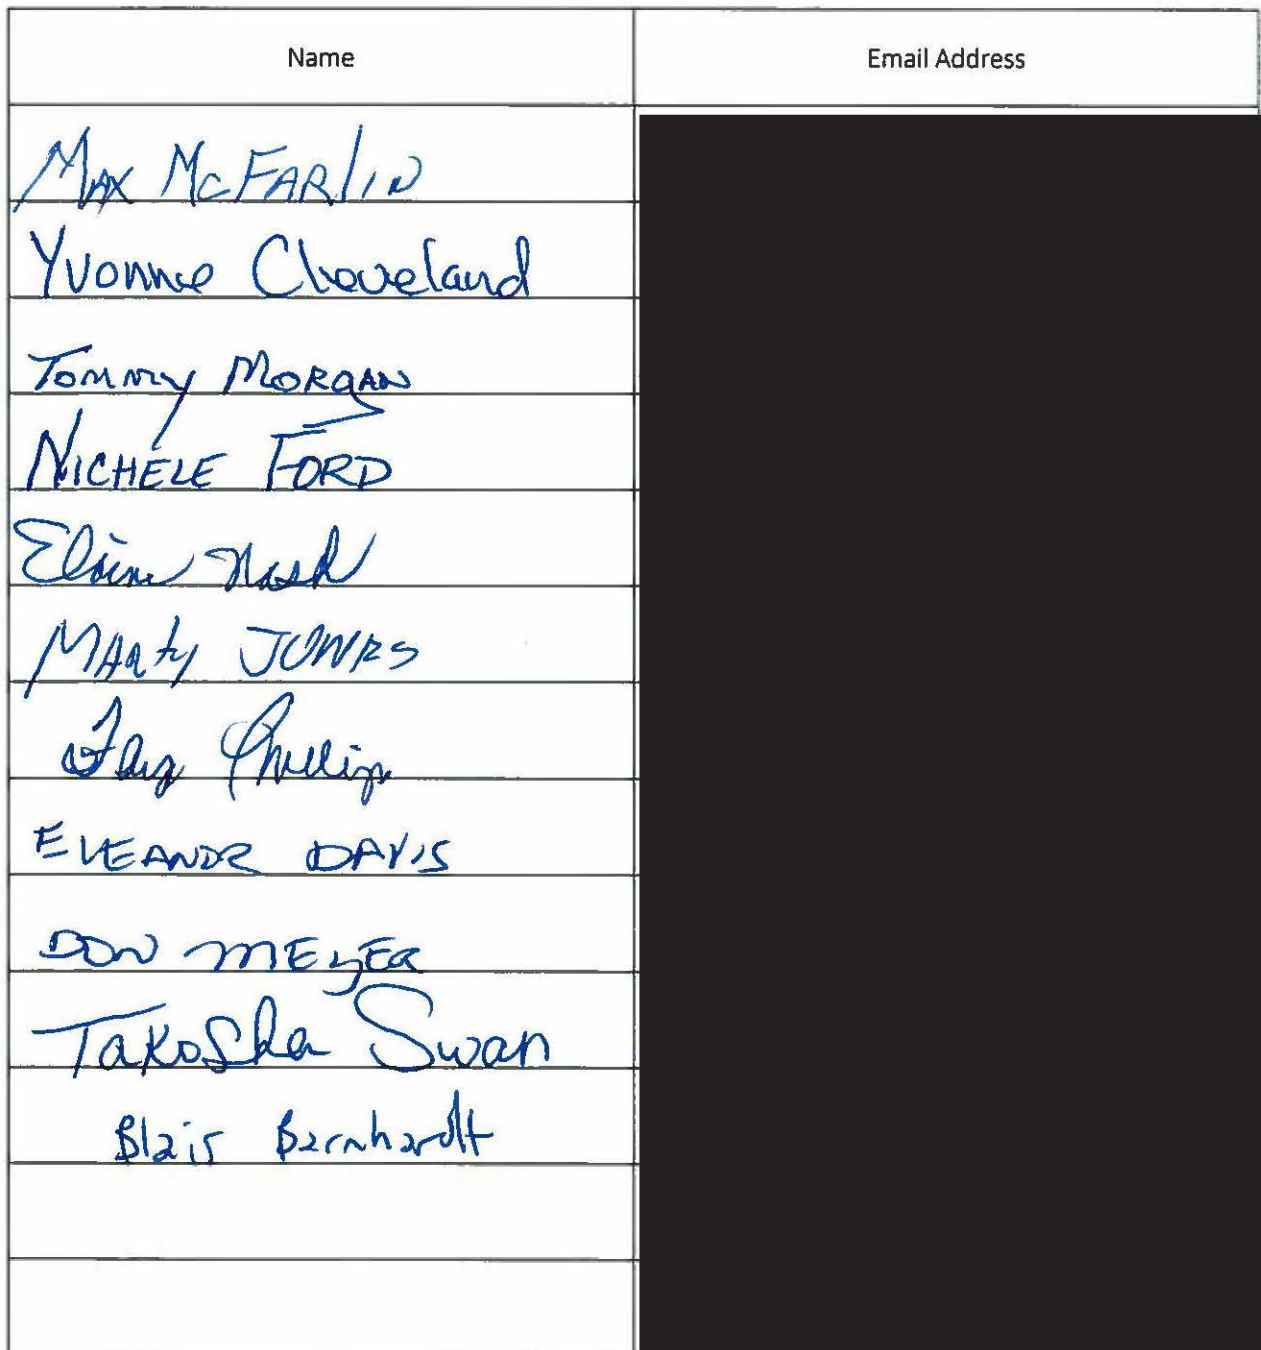 Name Email Address
Max McFarlin
Yvonne Cleveland
Tommy Morgan
Nichele Ford
Elaine Nash
Marty Jones
Phillips
Eleanor Davis
Don Meyer
Takosha Swan
Blair Bernhardt